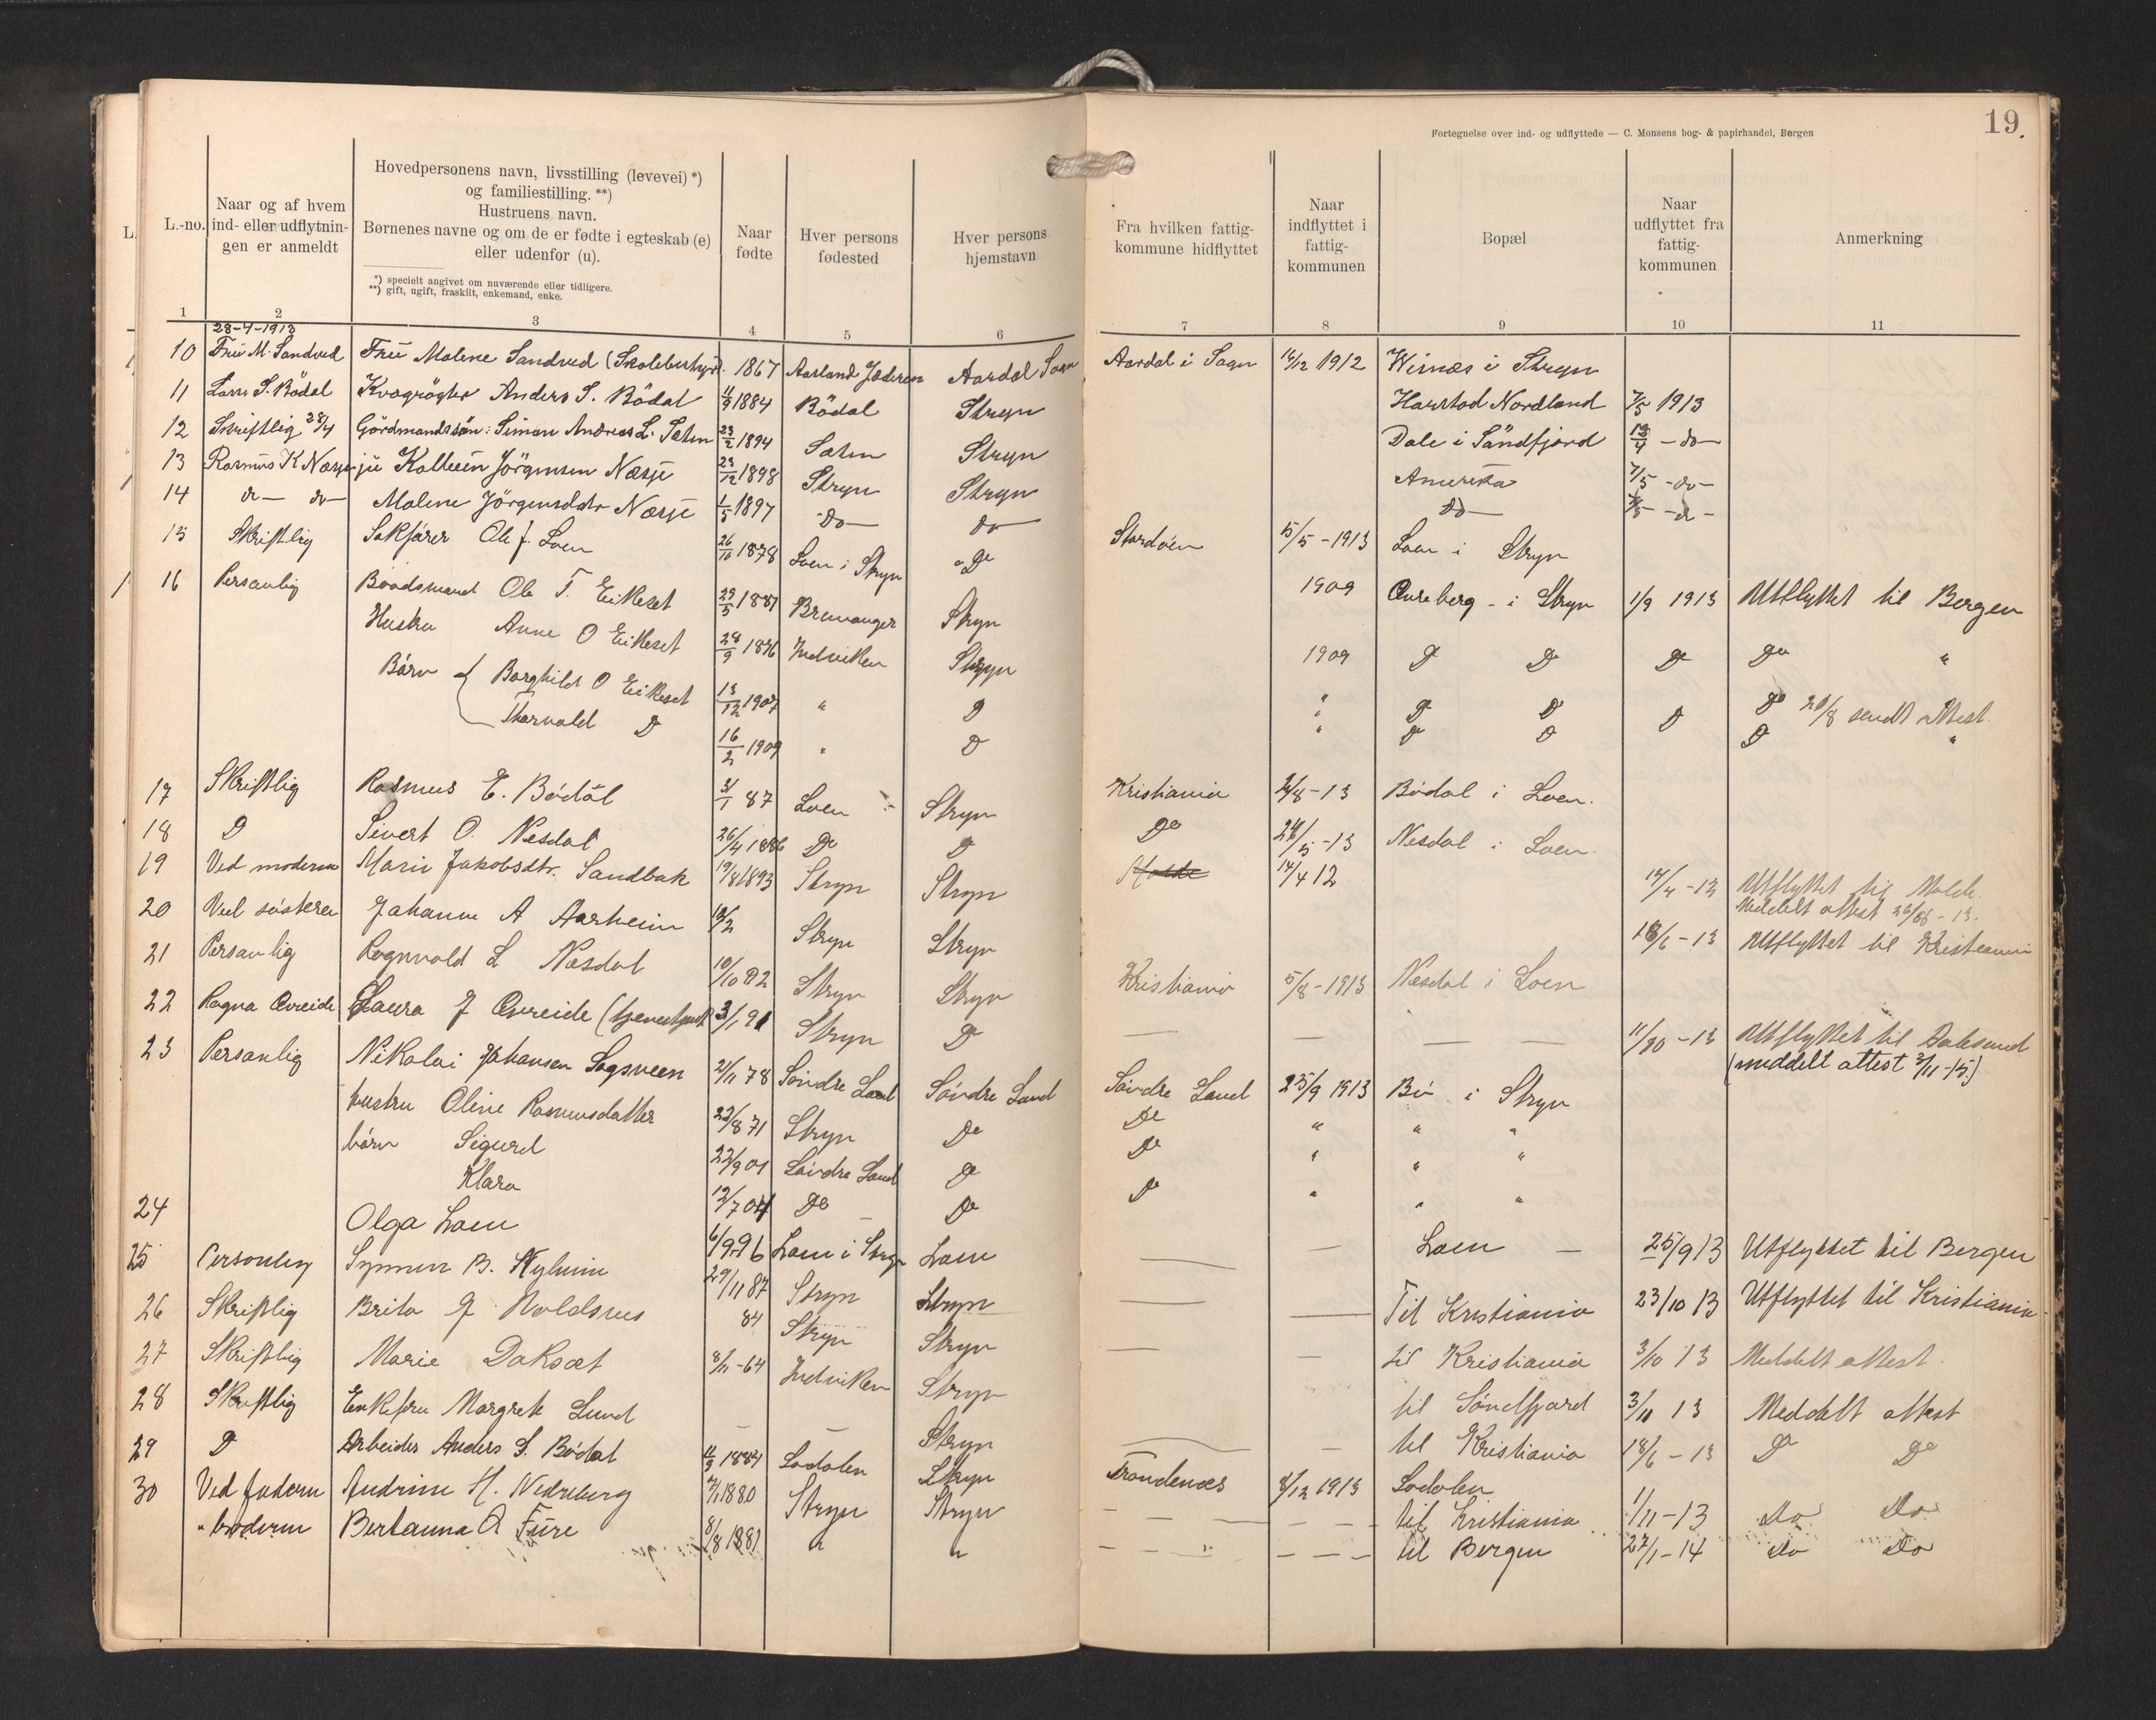 19.
Fortegnelse over ind- og udflyttede — C. Monsens bog- & papirhandel, Bergen
L.
L.-no.
Naar og af hvem
ind- eller udflytnin-
gen er anmeldt
Hovedpersonens navn, livsstilling (levevei) *)
og familiestilling. **)
Hustruens navn.
Børnenes navne og om de er fødte i egteskab (e)
eller udenfor (u).
*) specielt angivet om nuværende eller tidligere.
**) gift, ugift, fraskilt, enkemand, enke.
Naar
fødte
Hver persons
fødested
Hver persons
hjemstavn
Fra hvilken fattig-
kommune hidflyttet
Naar
indflyttet i
fattig-
kommunen
Bopæl
Naar
udflyttet fra
fattig-
kommunen
Anmerkning
1 2 3 4 5 6 7 8 9 10 11
28-4-1913
10 Fru M. Sandved Fru Malene Sandved 1867 Aarland Jæderen Aardal Sogn Aardal i Sogn 16/12 1912 Wisnæs i Stryn
11 Lars S. Bödal Kvægrögter Anders S. Bödal 11/9 1884 Bödal Stryn Harstad Nordland 7/5 1913
12 Skriftlig 28/4 Gördmandssön: Simon Andreas L. Sæten 23/2 1894 Sæten Stryn Dale i Söndfjord 13/4 -do-
13 Rasmus K Næsje Kolbein Jörgensen Næsje 23/12 1898 Stryn Stryn Amerika 7/5 -do-
14 do- do- Malene Jörgensdatr Næsje 1/5 1897 -Do- do- do- 7/5 -do-
15 Skriftlig Sakförer Ole J. Loen 26/10 1878 Loen i Stryn Do Stordöen 5/5-1913 Loen i Stryn
16 Personlig Baadsmand Ole T. Eikeset 29/5 1881 Bremanger Stryn 1909 Övreberg - i Stryn 1/9 1913 Utflyttet til Bergen
Hustru Anne O Eikeset 28/9 1876 Indviken Stryn 1909 Do Do Do Do "
Börn { Borghild O Eikeset 13/12 1907 " Do " Do Do Do Do 20/8 sendt attest
Thorvald Do 16/2 1909 " Do " Do Do Do "
17 Skriftlig Rasmus E. Bödal 31/1 87 Loen Stryn Kristiania 2/8-13 Bödal i Loen.
18 Do Sivert O. Nesdal 26/4 1886 Do Do Do 24/5-13 Nesdal i Loen.
19 Ved moderen Marie Jakobsdtr. Sandbak 19/8 1893 Stryn Stryn Molde 14/4 12 14/4-12 Utflyttet til Molde.
Meddelt attest 26/08-13.
20 Ved søsteren Johanne A Aarheim 12/2 Stryn Stryn 18/6-13 Utflyttet til Kristiania
21 Personlig Ragnvald L Næsdal 10/10 92 Stryn Stryn Kristiania 5/8-1913 Næsdal i Loen
22 Ragna Övreide Laura J Övreide 3/1 91 Stryn Do — — — — 11/10-13 Utflyttet til Aalesund
(meddelt attest 3/11-15.)
23 Personlig Nikolai Johansen Sogsveen 21/11 78 Söndre Land Söndre Land Söndre Land 25/9 1913 Bö i Stryn
hustru Oline Rasmusdatter 22/8 71 Stryn Do Do " " "
börn Sigurd 22/9 01 Söndre Land Do Do " " "
Klara 12/7 04 Do Do Do " " "
24 Olga Loen 6/9 96 Loen i Stryn Loen — — Loen — 25/9 13 Utflyttet til Bergen
25 Personlig Synnen B. Nyheim 29/11 87 Stryn Stryn — — Til Kristiania 23/10 13 Utflyttet til Kristiania
26 Skriftlig Brita J Voldsnes 84 Stryn Stryn — — til Kristiania 3/10 13 Meddelt attest
27 Skriftlig Marie Daksæt 8/11-64 Indviken Stryn til Søndfjord 3/11 13 Meddelt attest
28 Skriftlig Enkefru Margrete Lund — — Stryn — — til Kristiania 18/6-13 Do Do
29 Do Arbeider Anders S. Bödal 11/9 1884 Lodalen Stryn Trondenæs 8/12 1913 Lodalen
30 Ved faderen Andrine H. Nedreberg 7/1 1880 Stryn Stryn — — til Kristiania 1/11-13 Do Do
" broderen Bertanna A Füre 8/8 1881 " " — — til Bergen 27/1-14 do Do